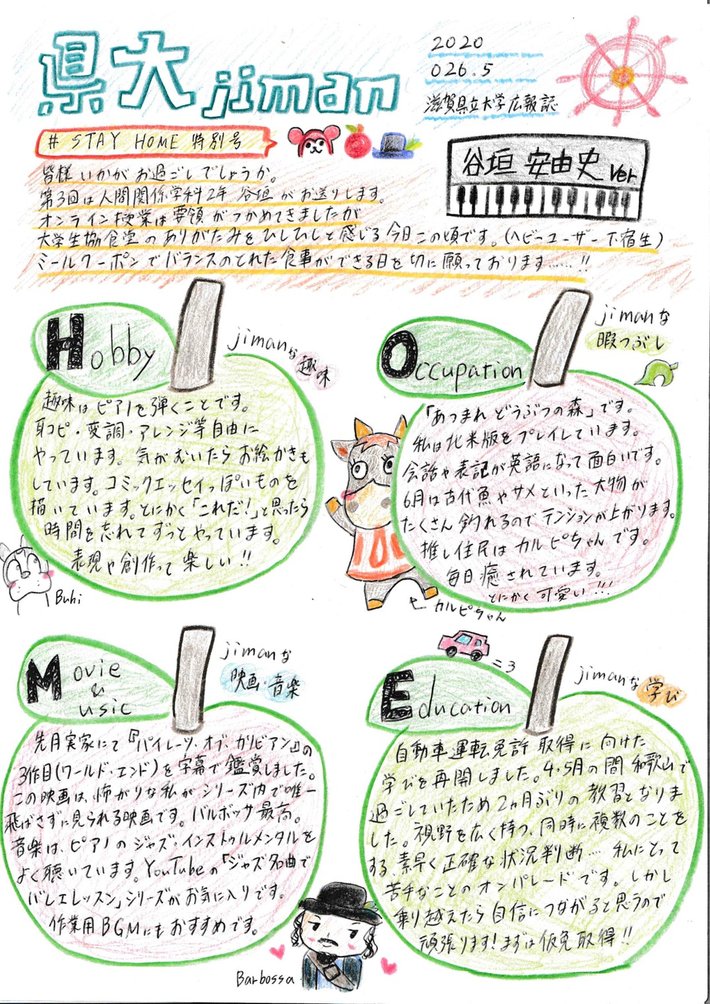 県大jiman
2020
026.5
滋賀県立大学広報誌
# STAY HOME 特別号
谷垣 安由史 Ver
皆様いかがお過ごしでしょうか。
第3回は人間関係学科2年 谷垣がお送りします。
オンライン授業は要領がつかめてきましたが
大学生協食堂のありがたみをひしひしと感じる今日この頃です。(ヘビーユーザー下宿生)
ミールクーポンでバランスのとれた食事ができる日を切に願っております……!!
Hobby
jimanな
趣味
趣味はピアノを弾くことです。
耳コピ・変調・アレンジ等自由に
やっています。気がむいたらお絵かきも
しています。コミックエッセイっぽいものを
描いています。とにかく「これだ!」と思ったら
時間を忘れてずっとやっています。
表現や創作って楽しい!!
Buhi
Occupation
jimanな
暇つぶし
「あつまれ どうぶつの森」です。
私は北米版をプレイしています。
会話や表記が英語になって面白いです。
6月は古代魚やサメといった大物が
たくさん釣れるのでテンションが上がります。
推し住民はカルピちゃんです。
毎日癒されています。
とにかく可愛い!!!
カルピちゃん
Movie
&
Music
jimanな
映画・音楽
先月実家にて『パイレーツ・オブ・カリビアン』の
3作目(ワールド・エンド)を字幕で鑑賞しました。
この映画は、怖がりな私がシリーズ内で唯一
飛ばさずに見られる映画です。バルボッサ最高。
音楽は、ピアノのジャズ・インストゥルメンタルを
よく聴いています。YouTubeの「ジャズ名曲で
バレエレッスン」シリーズがお気に入りです。
作業用BGMにもおすすめです。
Barbossa
Education
jimanな
学び
自動車運転免許取得に向けた
学びを再開しました。4・5月の間和歌山で
過ごしていたため2ヵ月ぶりの教習となりま
した。視野を広く持つ、同時に複数のことを
する、素早く正確な状況判断……私にとって
苦手なことのオンパレードです。しかし
乗り越えたら自信につながると思うので
頑張ります!まずは仮免取得!!